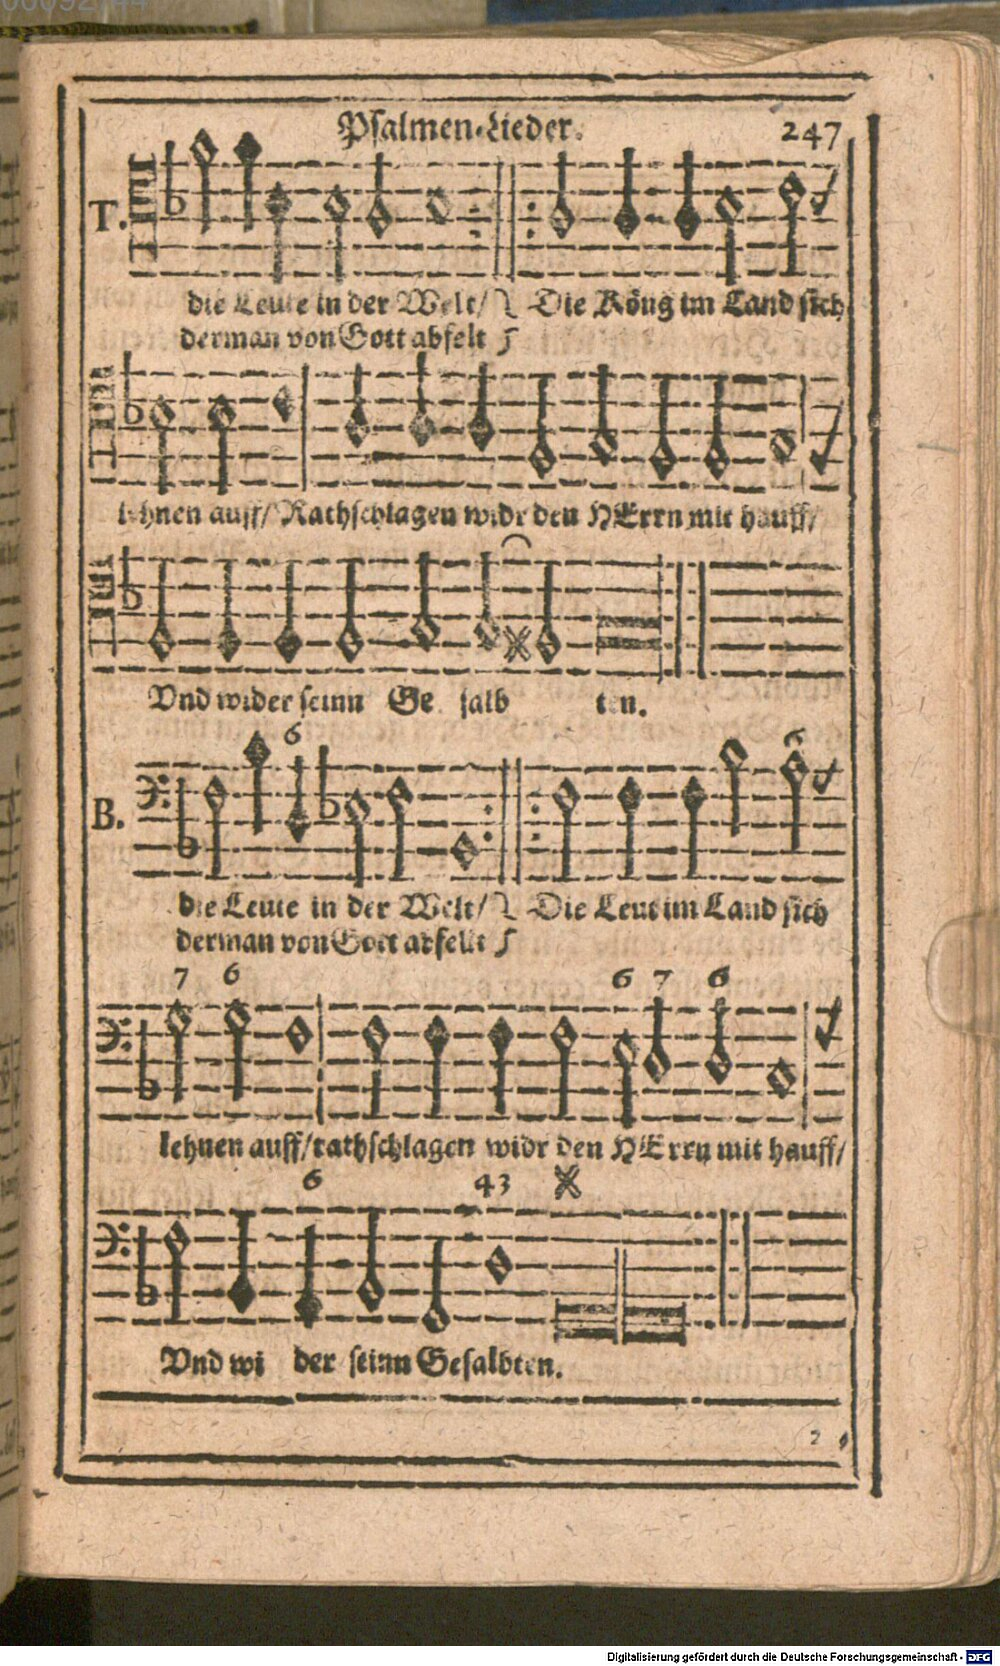 Psalmen-Lieder. 247
T.
die Leute in der Welt/ Die Köng im Land sich
derman von Gott abfelt
lehnen auff/ Rathschlagen widr den HErrn mit hauff/
Vnd wider seinn Ge salb ten.
6 6
B.
die Leute in der Welt/ Die Leut im Land sich
derman von Gott abfellt
7 6 6 7 6
lehnen auff/ rathschlagen widr den HErrn mit hauff/
6 43
Vnd wi der seinn Gesalbten.
2
Digitalisierung gefördert durch die Deutsche Forschungsgemeinschaft - DFG